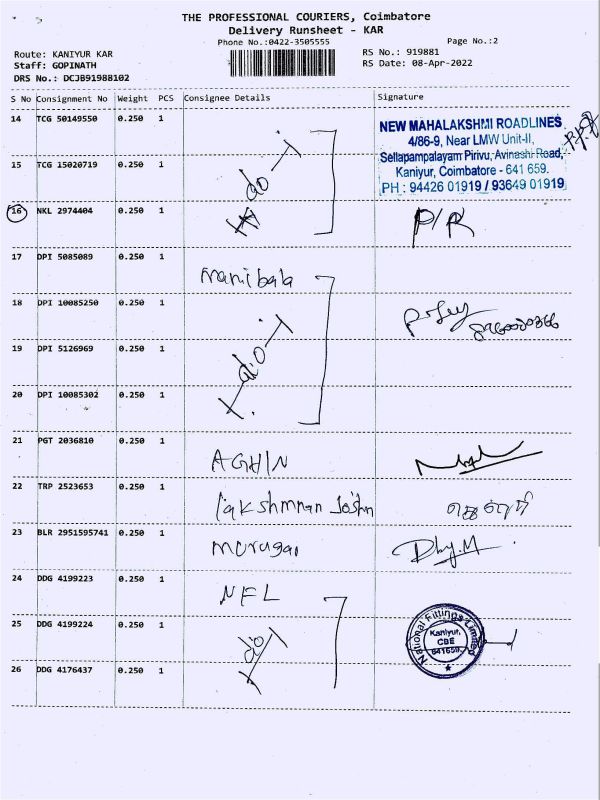 THE PROFESSIONAL COURIERS, Coimbatore
Delivery Runsheet - KAR
Phone No.:0422-3505555
Page No.:2
Route: KANIYUR KAR
RS No.: 919881
Staff: GOPINATH
RS Date: 08-Apr-2022
DRS No.: DCJB91988102
S No Consignment No Weight PCS Consignee Details Signature
14 TCG 50149550 0.250 1
NEW MAHALAKSHMI ROADLINES
4/86-9, Near LMW Unit-II,
Sellapampalayam Pirivu, Avinashi Road,
Kaniyur, Coimbatore - 641 659.
PH : 94426 01919 / 93649 01919
15 TCG 15020719 0.250 1 do
16 NKL 2974404 0.250 1 P/R
17 DPI 5085089 0.250 1 manibala
18 DPI 10085250 0.250 1
19 DPI 5126969 0.250 1 do
20 DPI 10085302 0.250 1
21 PGT 2036810 0.250 1 AGHIN
22 TRP 2523653 0.250 1 lakshmnan
23 BLR 2951595741 0.250 1 murugan Dhy.M
24 DDG 4199223 0.250 1 NFL
25 DDG 4199224 0.250 1 do
National Fittings Limited
Kaniyur,
CBE
641659.
26 DDG 4176437 0.250 1